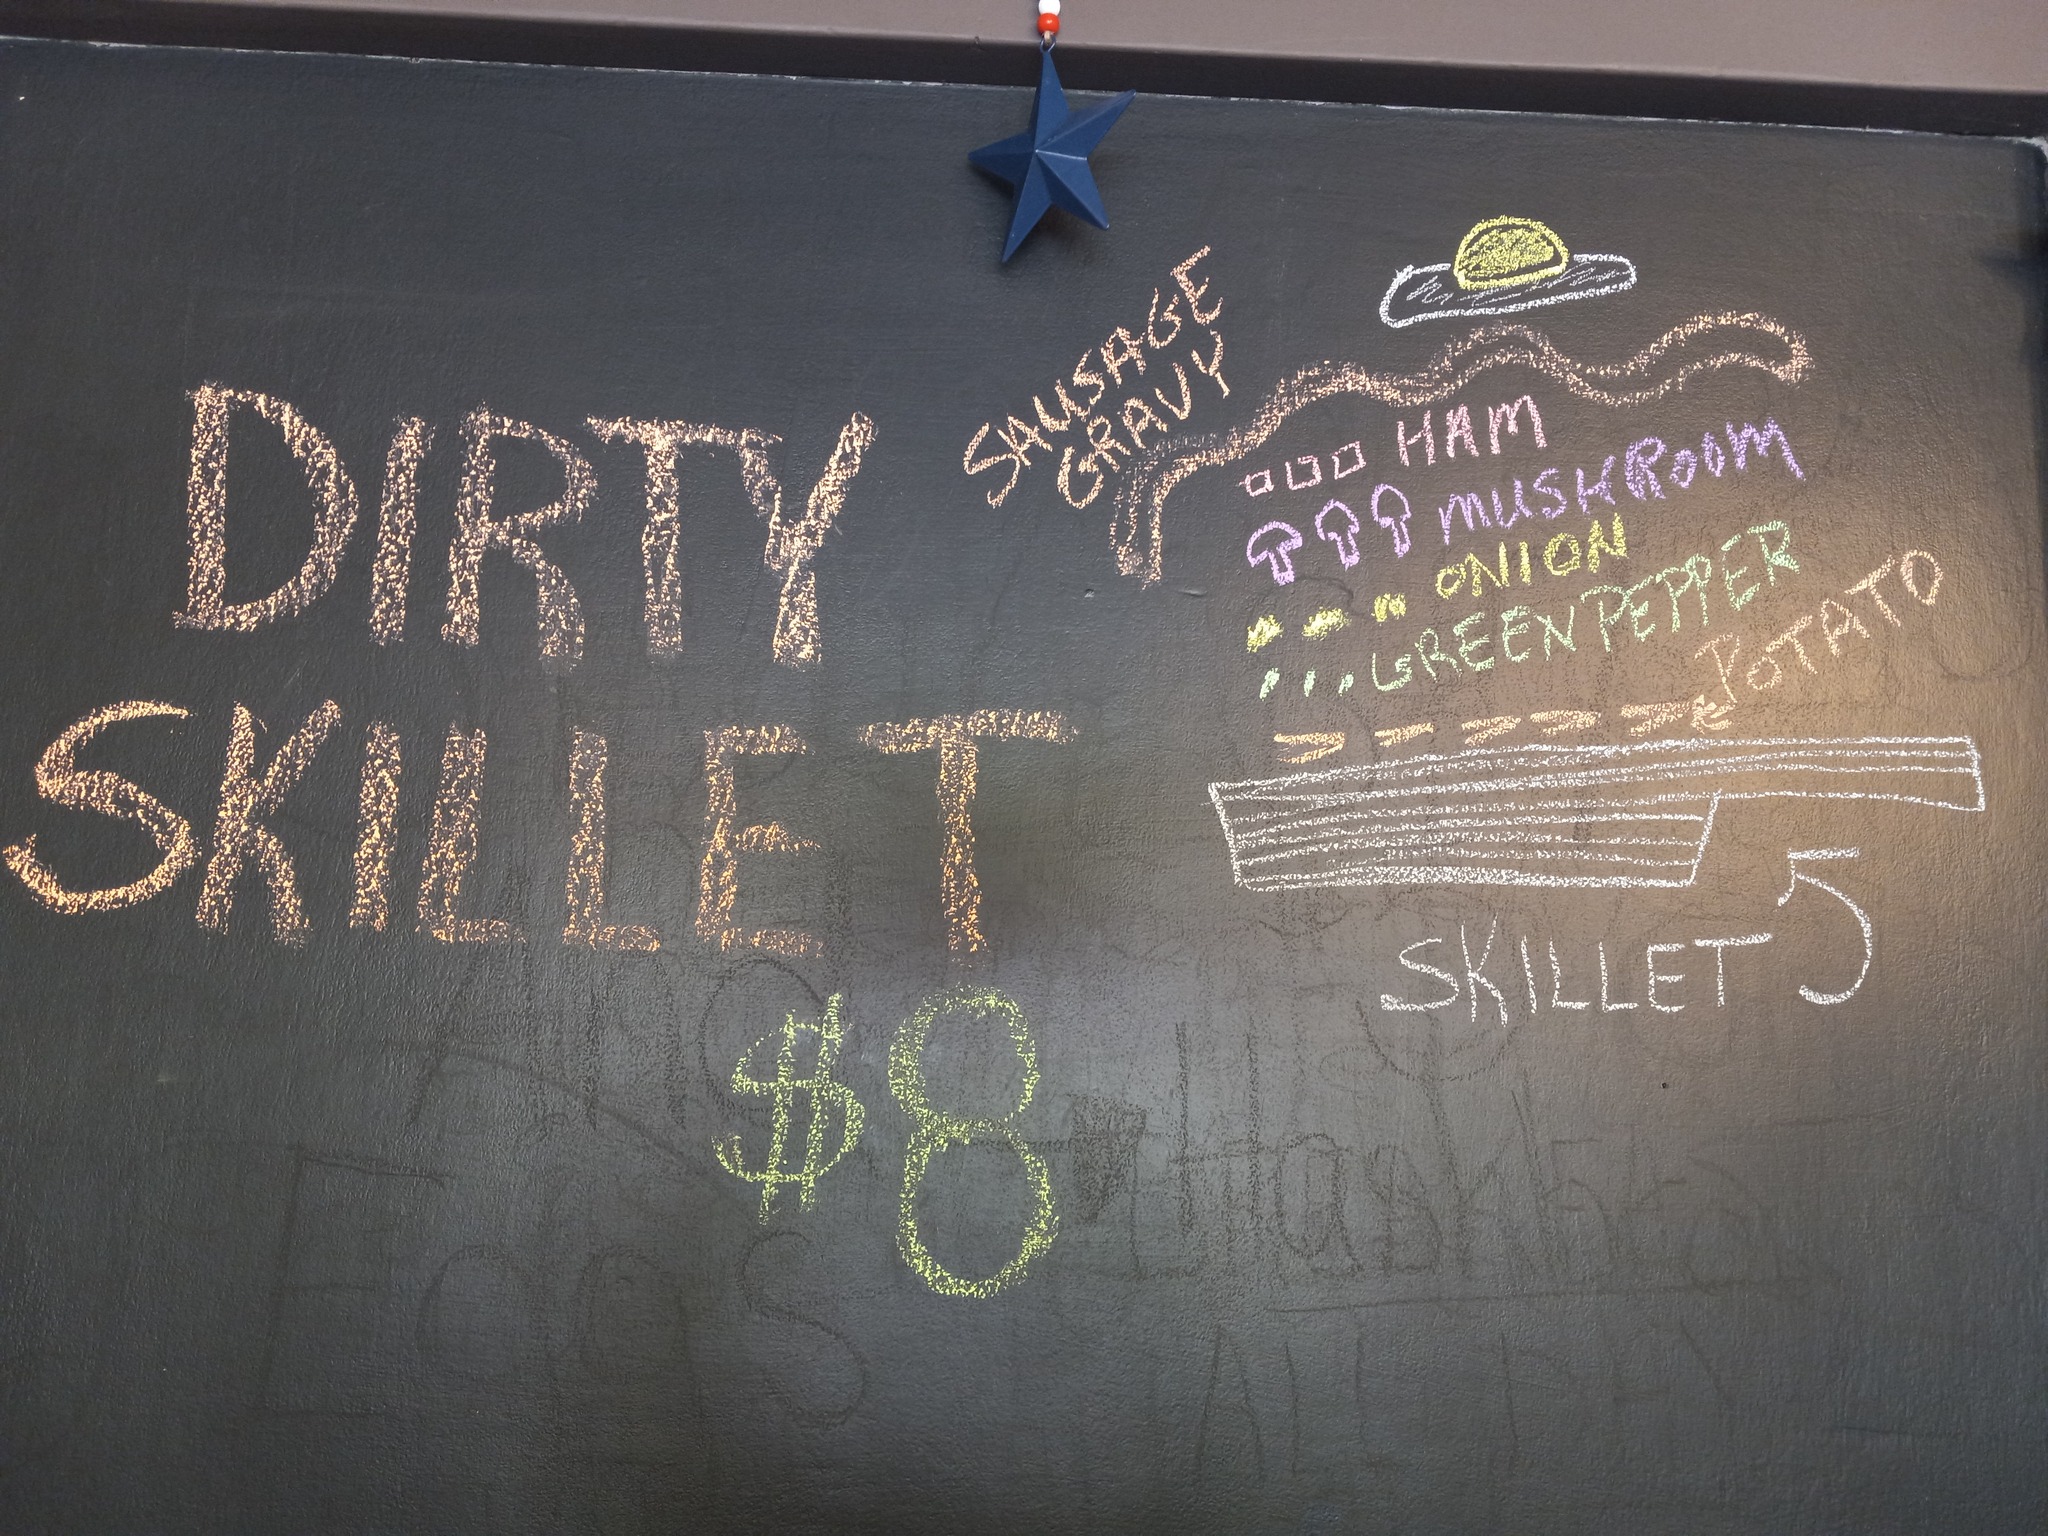 DIRTY
SKILLET
$8
SAUSAGE
GRAVY
HAM
MUSHROOM
ONION
GREEN PEPPER
POTATO
SKILLET
EGGS